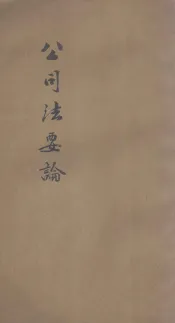 公司法要論